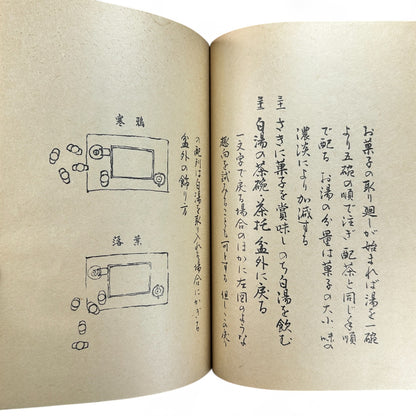 お菓子の取り廻しが始まれば湯を一碗
より五碗の順で注ぎ 配茶と同じ手順
で配ち お湯の分量は菓子の大小 味の
濃淡により加減する
さきに菓子を賞味しのち白湯を飲む
白湯の茶碗・茶托 盆外に戻る
一文字で戻る場合のほかに左図のような
趣向を試みることも可とする 但しこの戻り
の配列は白湯を取り入れる場合にかぎる
盆外の飾り方
寒鴉
落葉